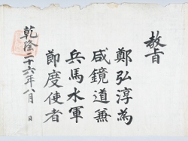 教旨
鄭弘淳為
咸鏡道兼
兵馬水軍
節度使者
乾隆二十六年八月 日